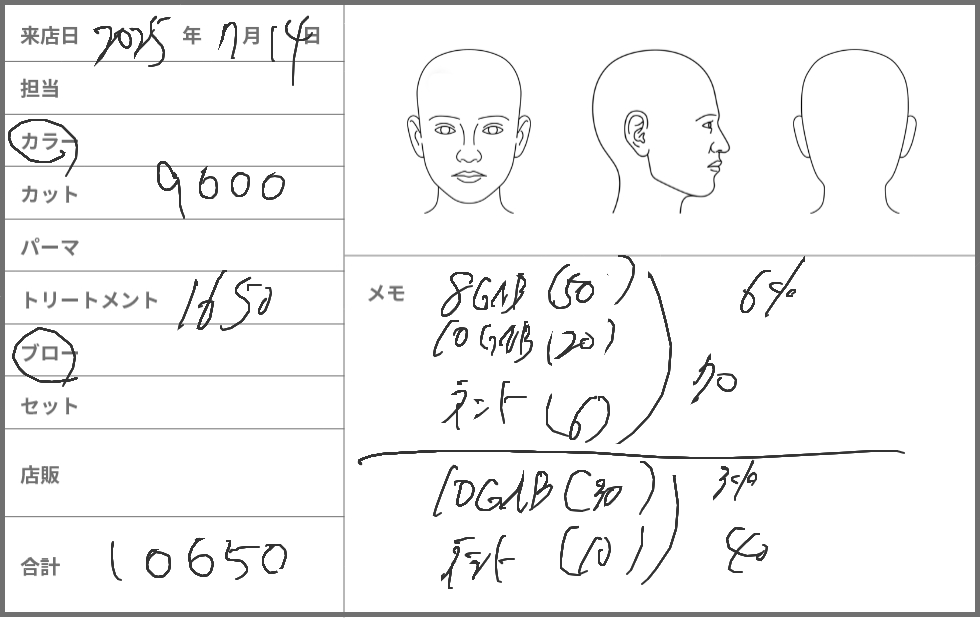 来店日 2025 年 7 月 14 日
担当
カラー
カット 9000
パーマ
トリートメント 1650
ブロー
セット
店販
合計 10650
メモ 8GNB (50) 6%
10GNB (20)
70
ミント (6)
10GNB (30) 3%
ミント (10) 40